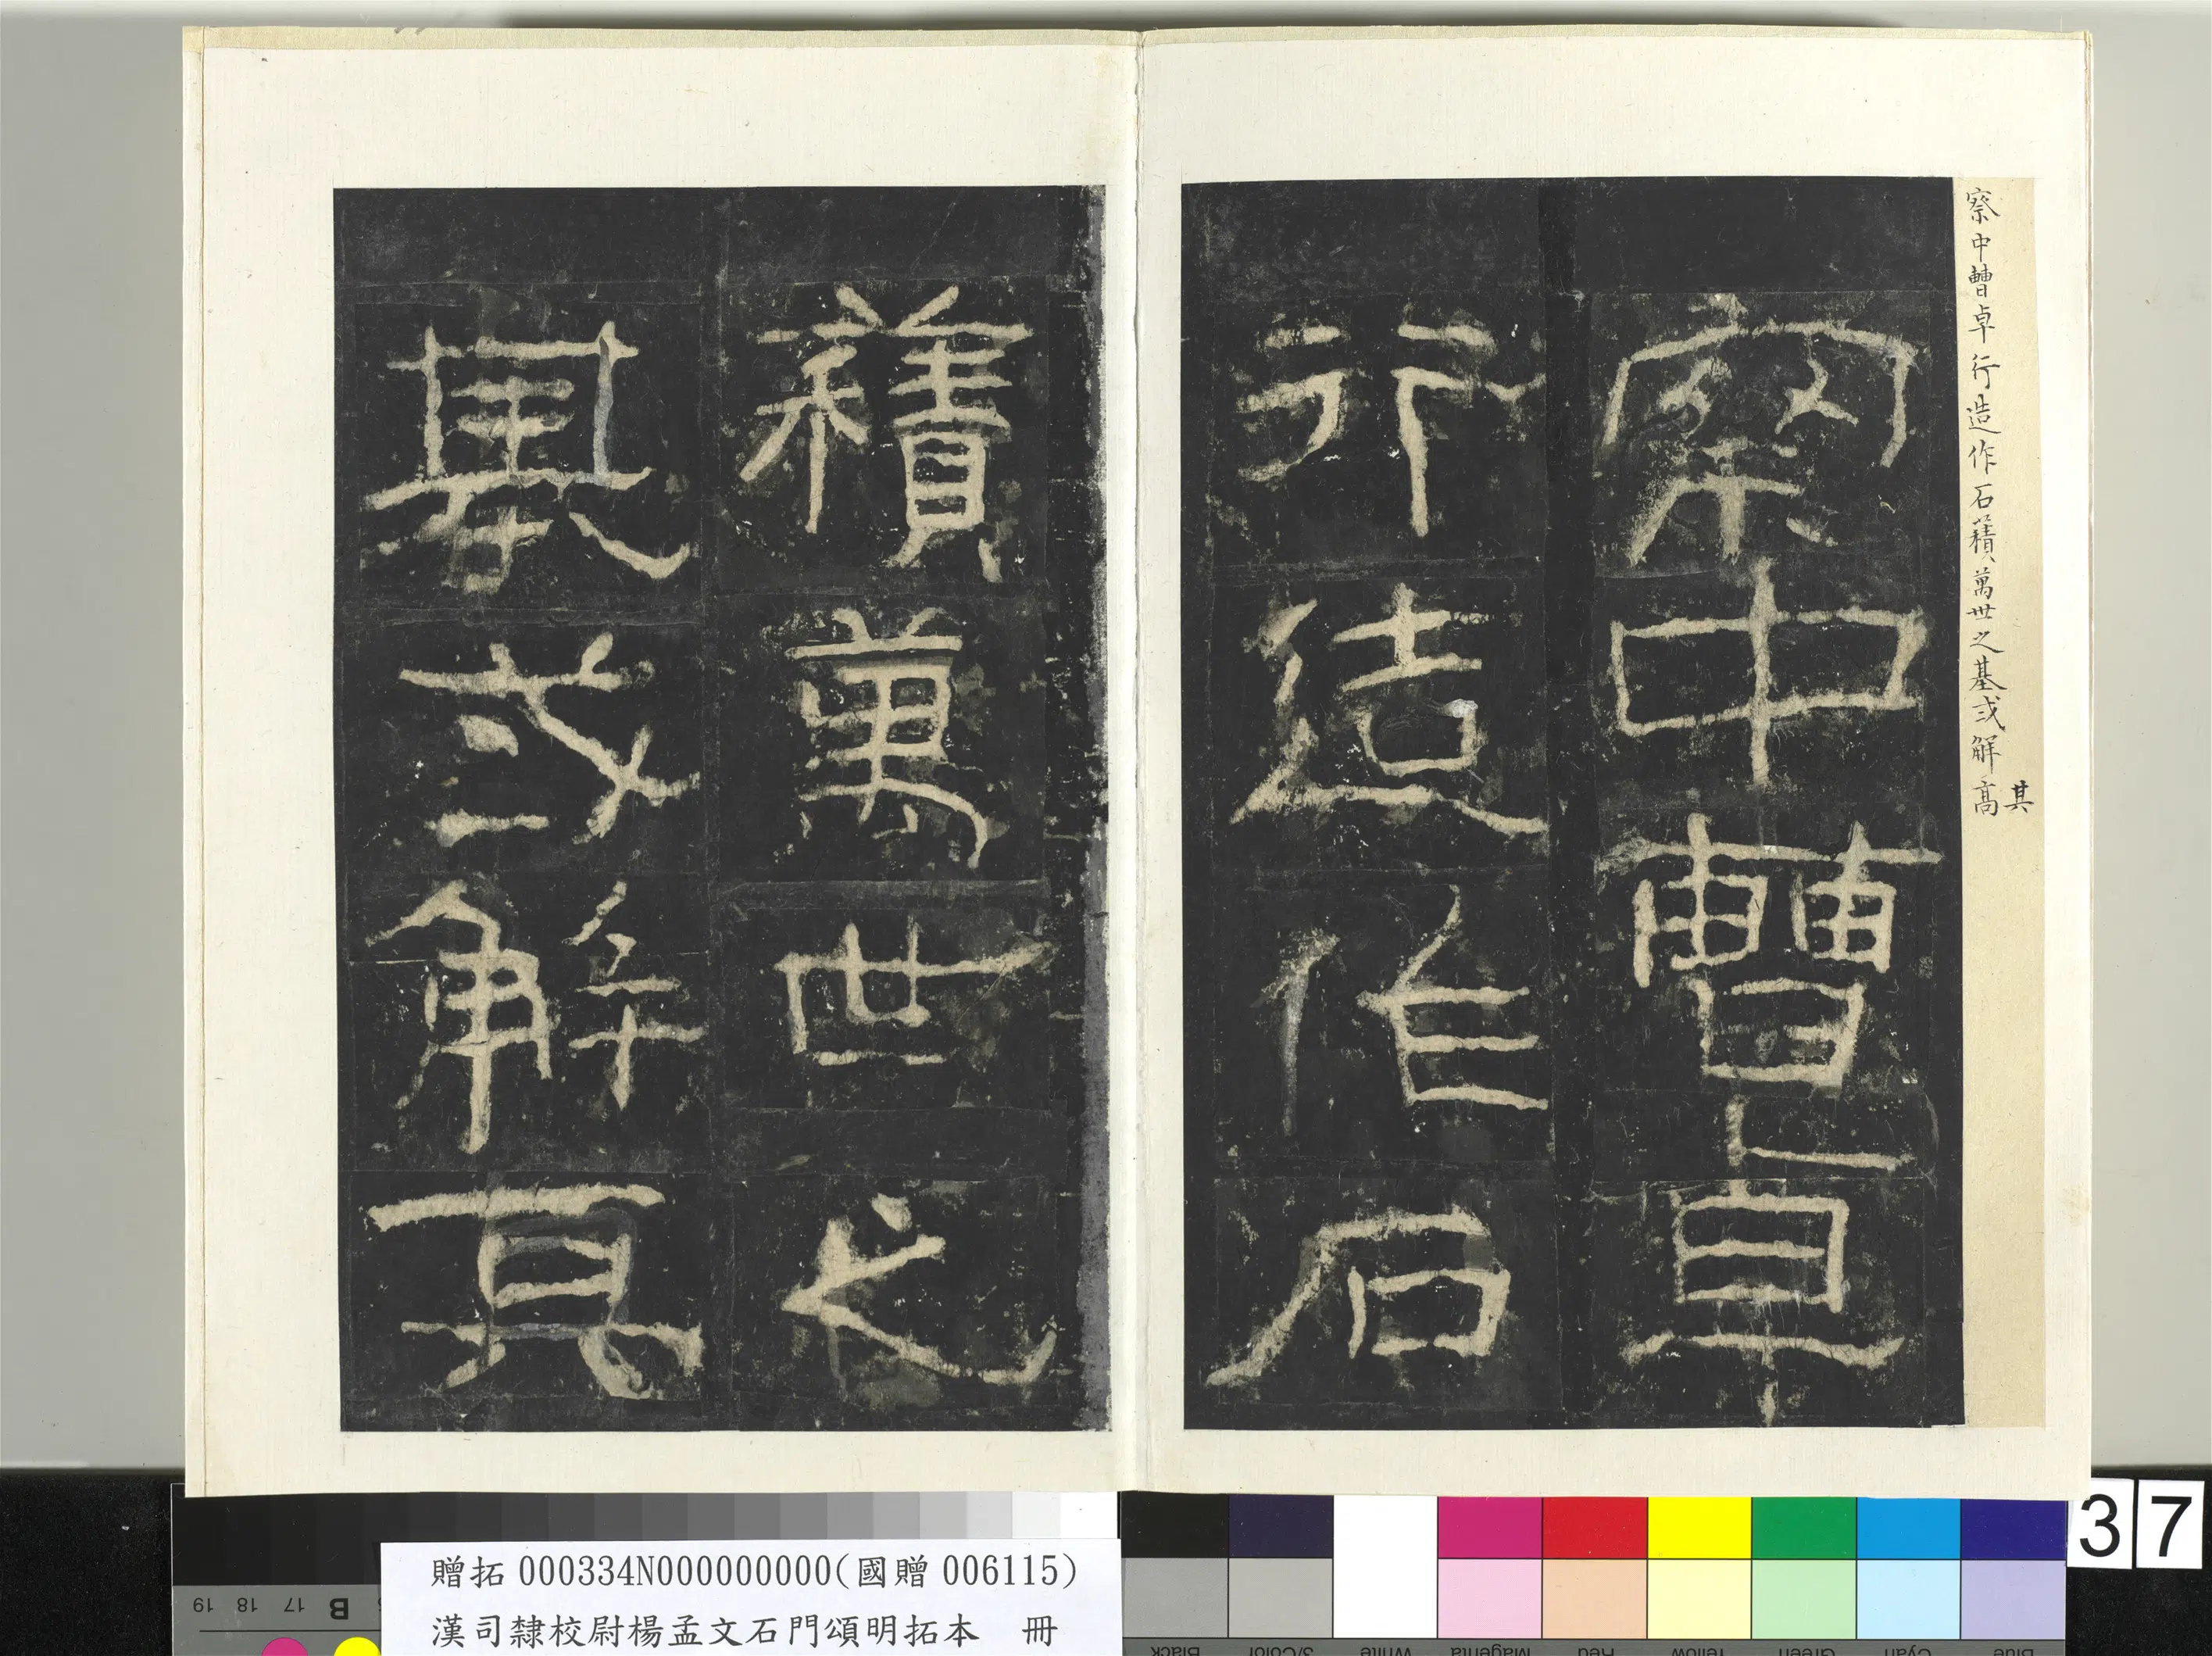 察中曹卓行造作石䆅萬世之基或解高
其
察中曹卓
行造作石
積萬世之
基或解其
37
贈拓 000334N000000000(國贈 006115)
漢司隸校尉楊孟文石門頌明拓本 冊
19 18 17 B
Black 3/Color White Magenta Red Yellow Green Cyan Blue